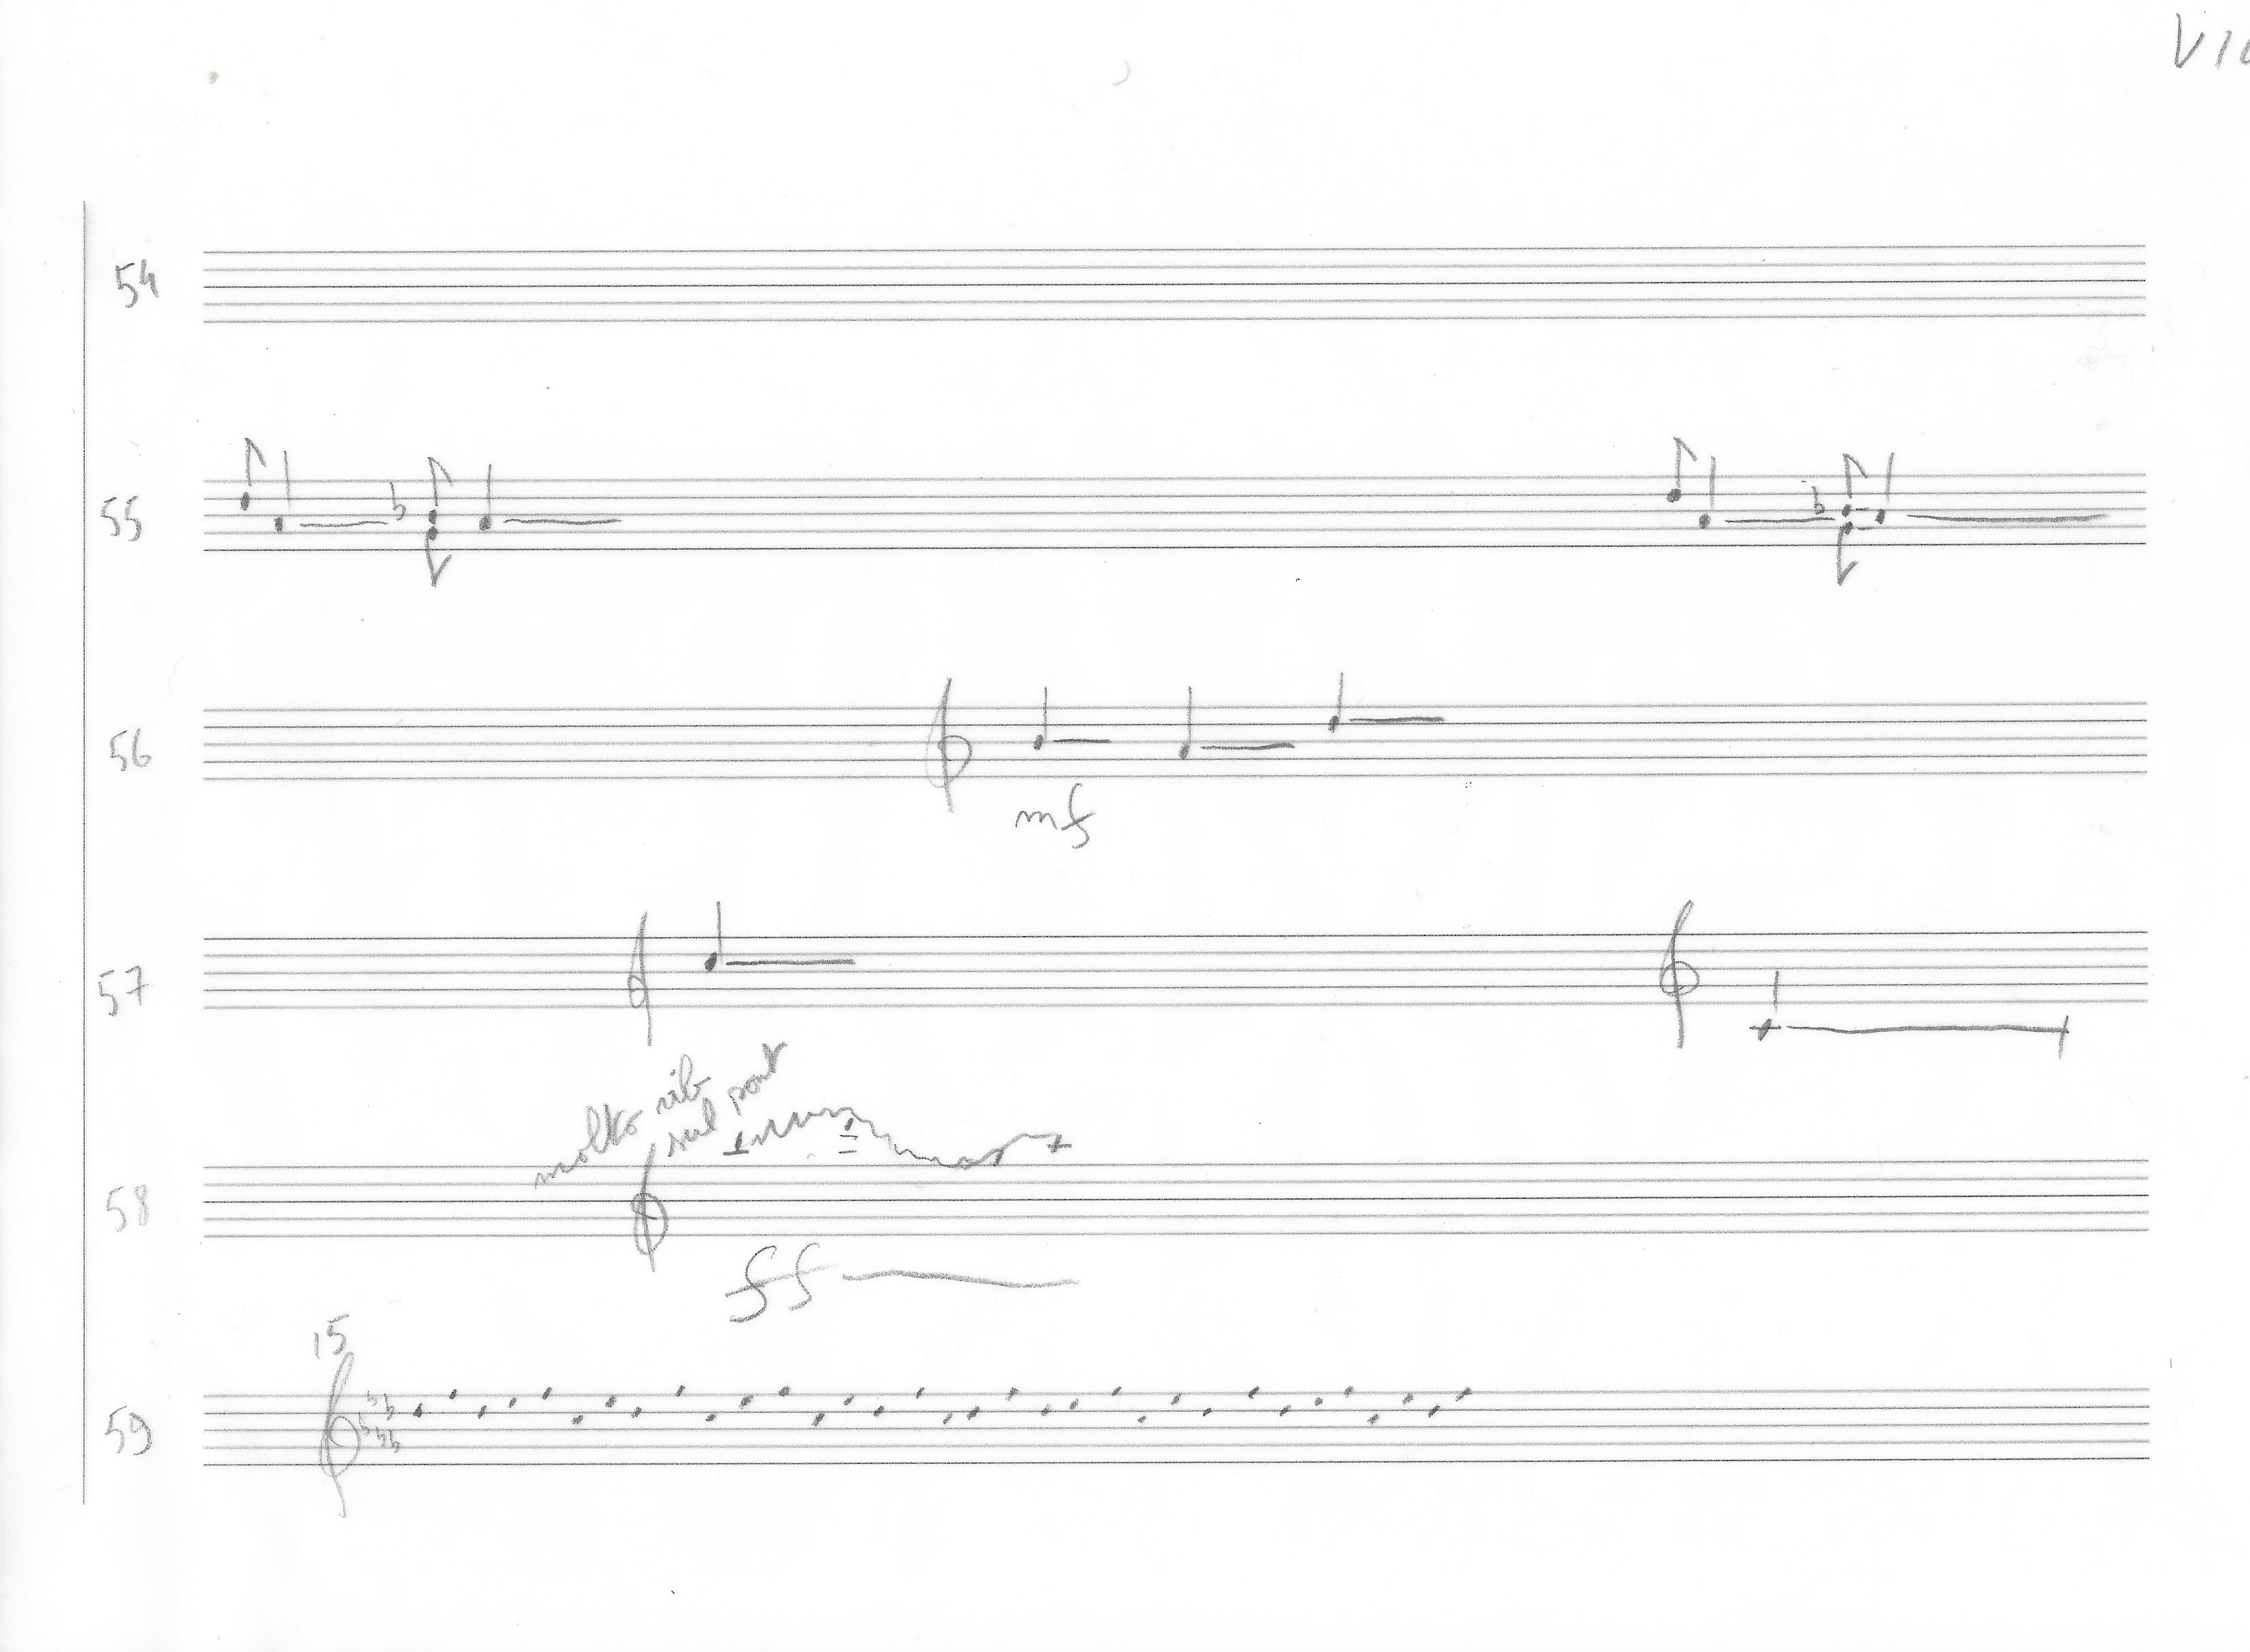 54
55
56
mf
57
molto vib
sul pont
58
ff
15
59